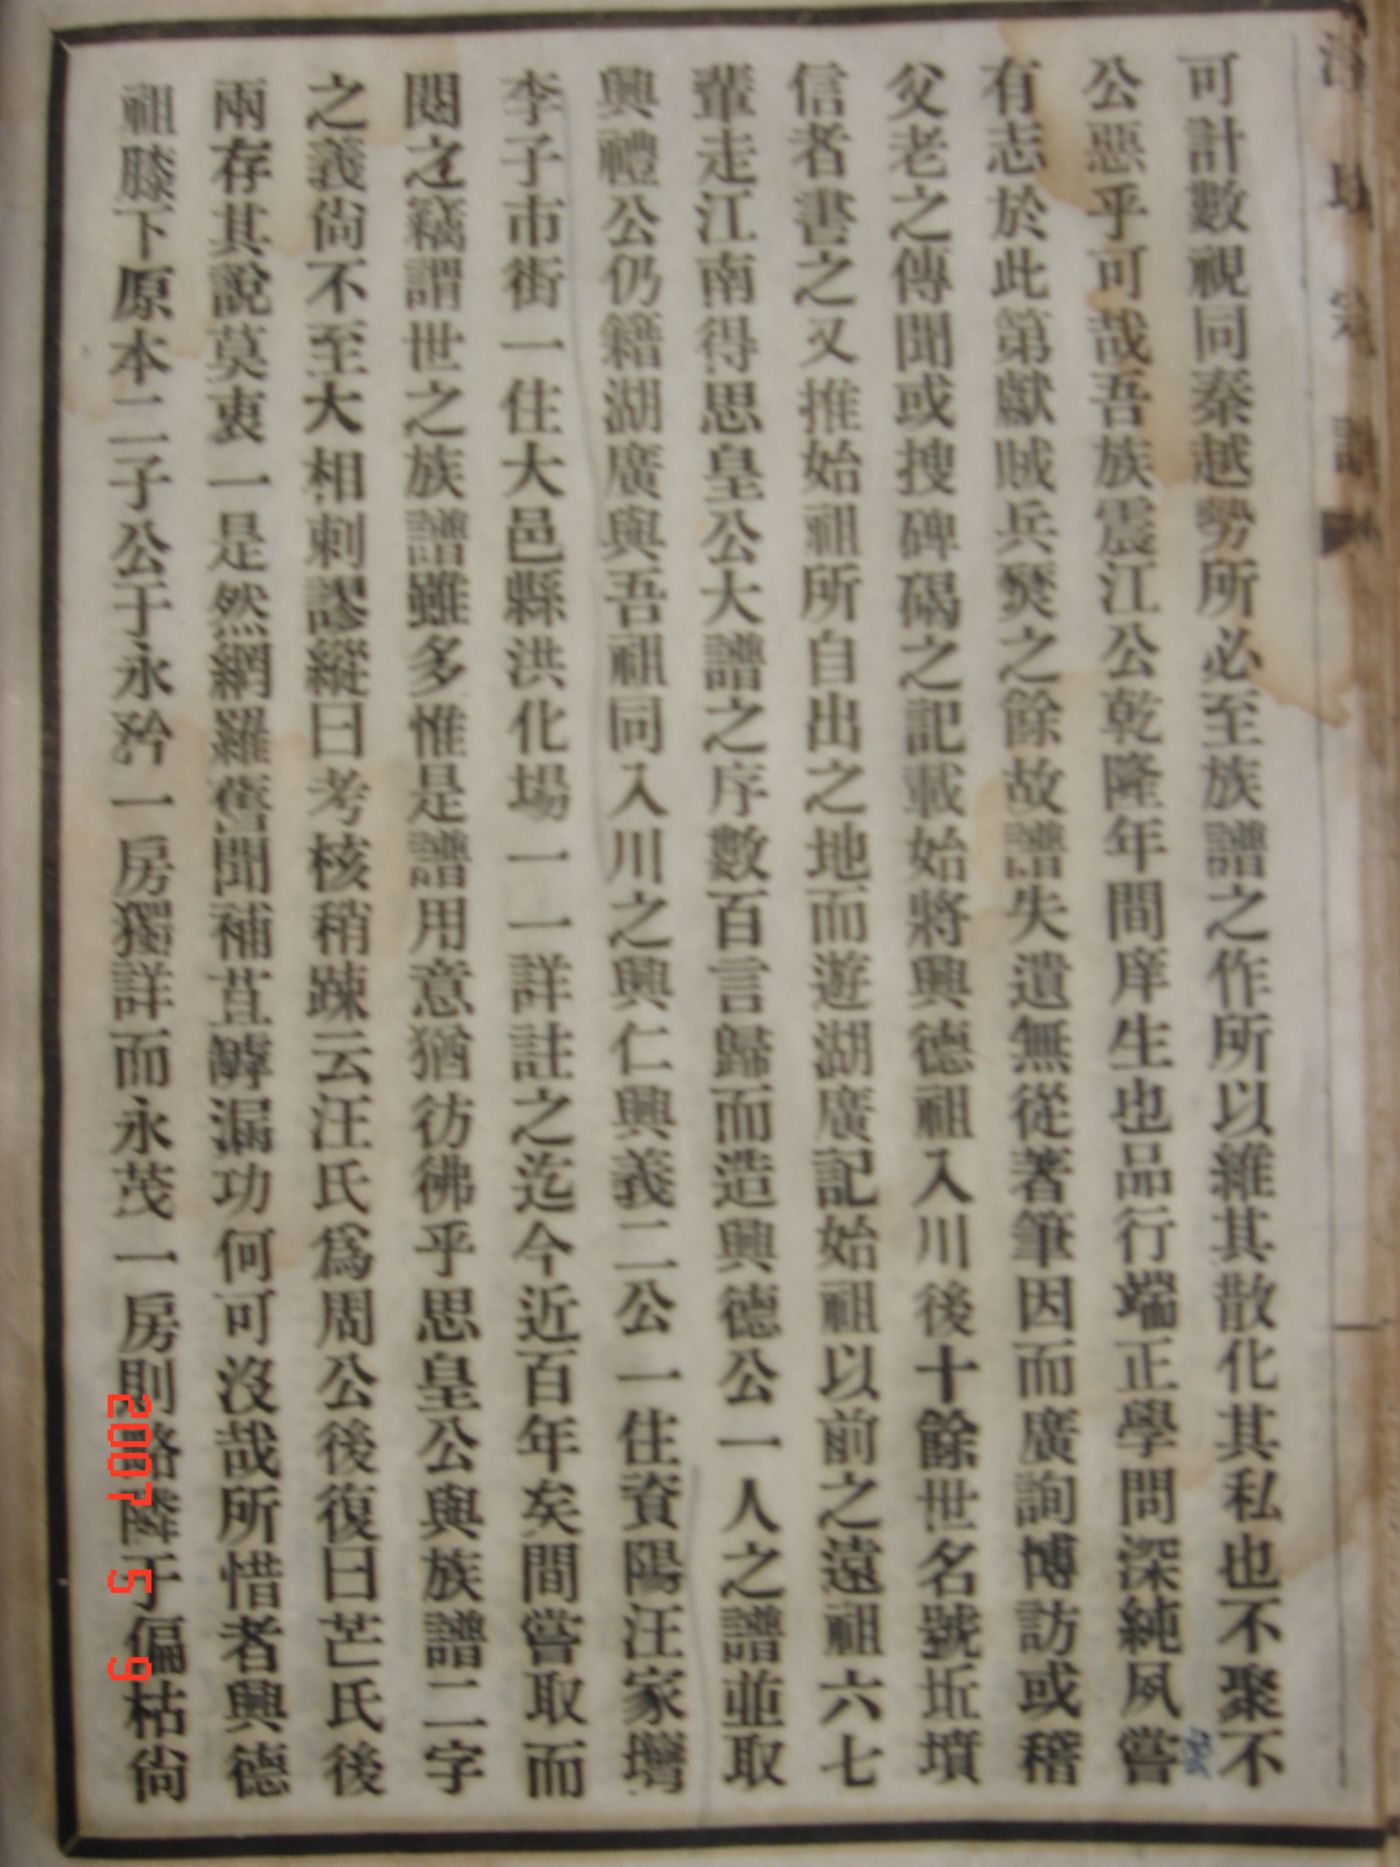 可計數視同秦越勢所必至族譜之作所以維其散化其私也不聚不
公惡乎可哉吾族震江公乾隆年間庠生也品行端正學問深純夙嘗
有志於此第獻賊兵燹之餘故譜失遺無從著筆因而廣詢博訪或稽
父老之傳聞或搜碑碣之記載始將興德祖入川後十餘世名號坵墳
信者書之又推始祖所自出之地而遊湖廣記始祖以前之遠祖六七
輩走江南得思皇公大譜之序數百言歸而造興德公一人之譜並取
興禮公仍籍湖廣與吾祖同入川之興仁興義二公一住資陽汪家壩
李子市街一住大邑縣洪化場一一詳註之迄今近百年矣間嘗取而
閱之竊謂世之族譜雖多惟是譜用意猶彷彿乎思皇公與族譜二字
之義尙不至大相刺謬縱曰考核稍踈云汪氏爲周公後復曰芒氏後
兩存其說莫衷一是然網羅舊聞補苴罅漏功何可沒哉所惜者興德
祖膝下原本二子公于永矜一房獨詳而永茂一房則略隣于偏枯尙
2007 5 9